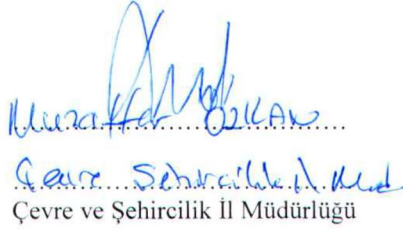 Muzaffer ÖZKAN
Çevre Şehircilik İl Müd.
Çevre ve Şehircilik İl Müdürlüğü